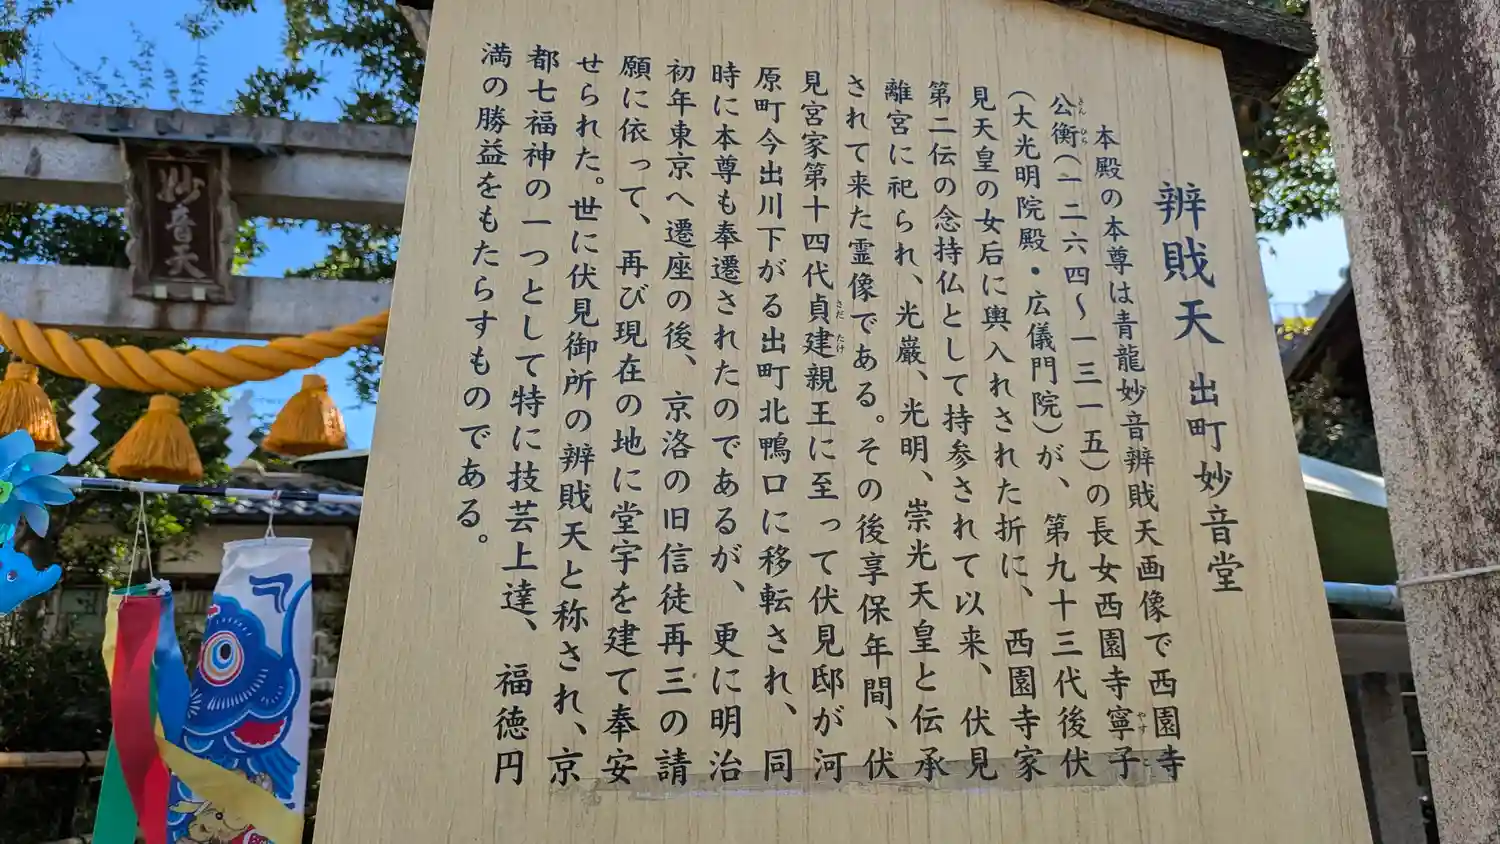 辨戝天 出町妙音堂
本殿の本尊は青龍妙音辨戝天画像で西園寺
公衡(一二六四〜一三一五)の長女西園寺寧子
(大光明院殿・広儀門院)が、第九十三代後伏
見天皇の女后に輿入れされた折に、西園寺家
第二伝の念持仏として持参されて以来、伏見
離宮に祀られ、光巌、光明、崇光天皇と伝承
されて来た霊像である。その後享保年間、伏
見宮家第十四代貞建親王に至って伏見邸が河
原町今出川下がる出町北鴨口に移転され、同
時に本尊も奉遷されたのであるが、更に明治
初年東京へ遷座の後、京洛の旧信徒再三の請
願に依って、再び現在の地に堂宇を建て奉安
せられた。世に伏見御所の辨戝天と称され、京
都七福神の一つとして特に技芸上達、福徳円
満の勝益をもたらすものである。
きん ひら
やす こ
さだ たけ
妙音天